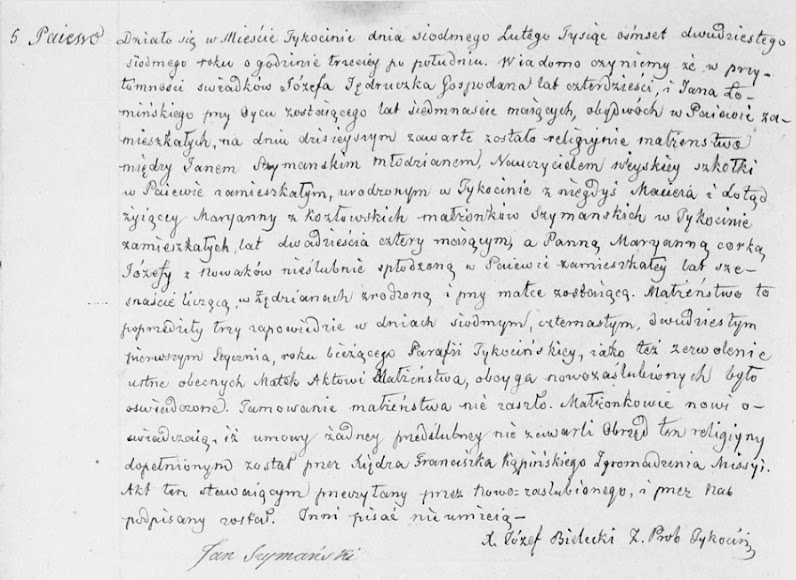 5 Paiewo
Działo się w Mieście Tykocinie dnia siodmego Lutego Tysiąc ośmset dwudziestego
siodmego roku o godzinie trzeciey po południu. Wiadomo czyniemy że w przy-
tomności swiadków Józefa Jędruczka Gospodarza lat czterdzieści, i Jana Ło-
mińskiego przy Oycu zostaiącego lat siedmnaście maiących, obydwóch w Paiewie za-
mieszkałych, na dniu dzisieyszym zawarte zostało religiynie małżenstwo
między Janem Szymanskim Młodzianem, Nauczycielem weyskiey szkołki
w Paiewie zamieszkałym, urodzonym w Tykocinie z niegdyś Macieia i dotąd
żyiącey Maryanny z Kozłowskich małżonków Szymanskich w Tykocinie
zamieszkałych, lat dwadzieścia cztery maiącym, a Panną Maryanną corką
Józefy z Nowaków nieślubnie spłodzoną w Paiewie zamieszkałey lat sze-
snaście liczącą, w Żędzianach zrodzoną i przy matce zostaiącą. Małżeństwo to
poprzedziły trzy zapowiedzie w dniach siodmym, czternastym, dwudziestym
pierwszym Stycznia, roku bieżącego Parafii Tykocińskiey, iako też zezwolenie
ustne obecnych Matek Aktowi Małżeństwa, obcyga nowozaślubionych było
oswiadczone. Tamowanie małżeństwa nie zaszło. Małżonkowie nowi o-
swiadczaią, iż umowy żadney przedślubney nie zawarli Obrzęd ten religiyny
dopełnionym został przez Xiędza Franciszka Kąpińskiego Zgromadzenia Missyi.
Akt ten stawaiącym przeczytany przez Nowo-zaslubionego, i przez Nas
podpisany został. Inni pisać nieumieią—
X. Józef Bielecki Z. Prob Tykociń
Jan Szymański